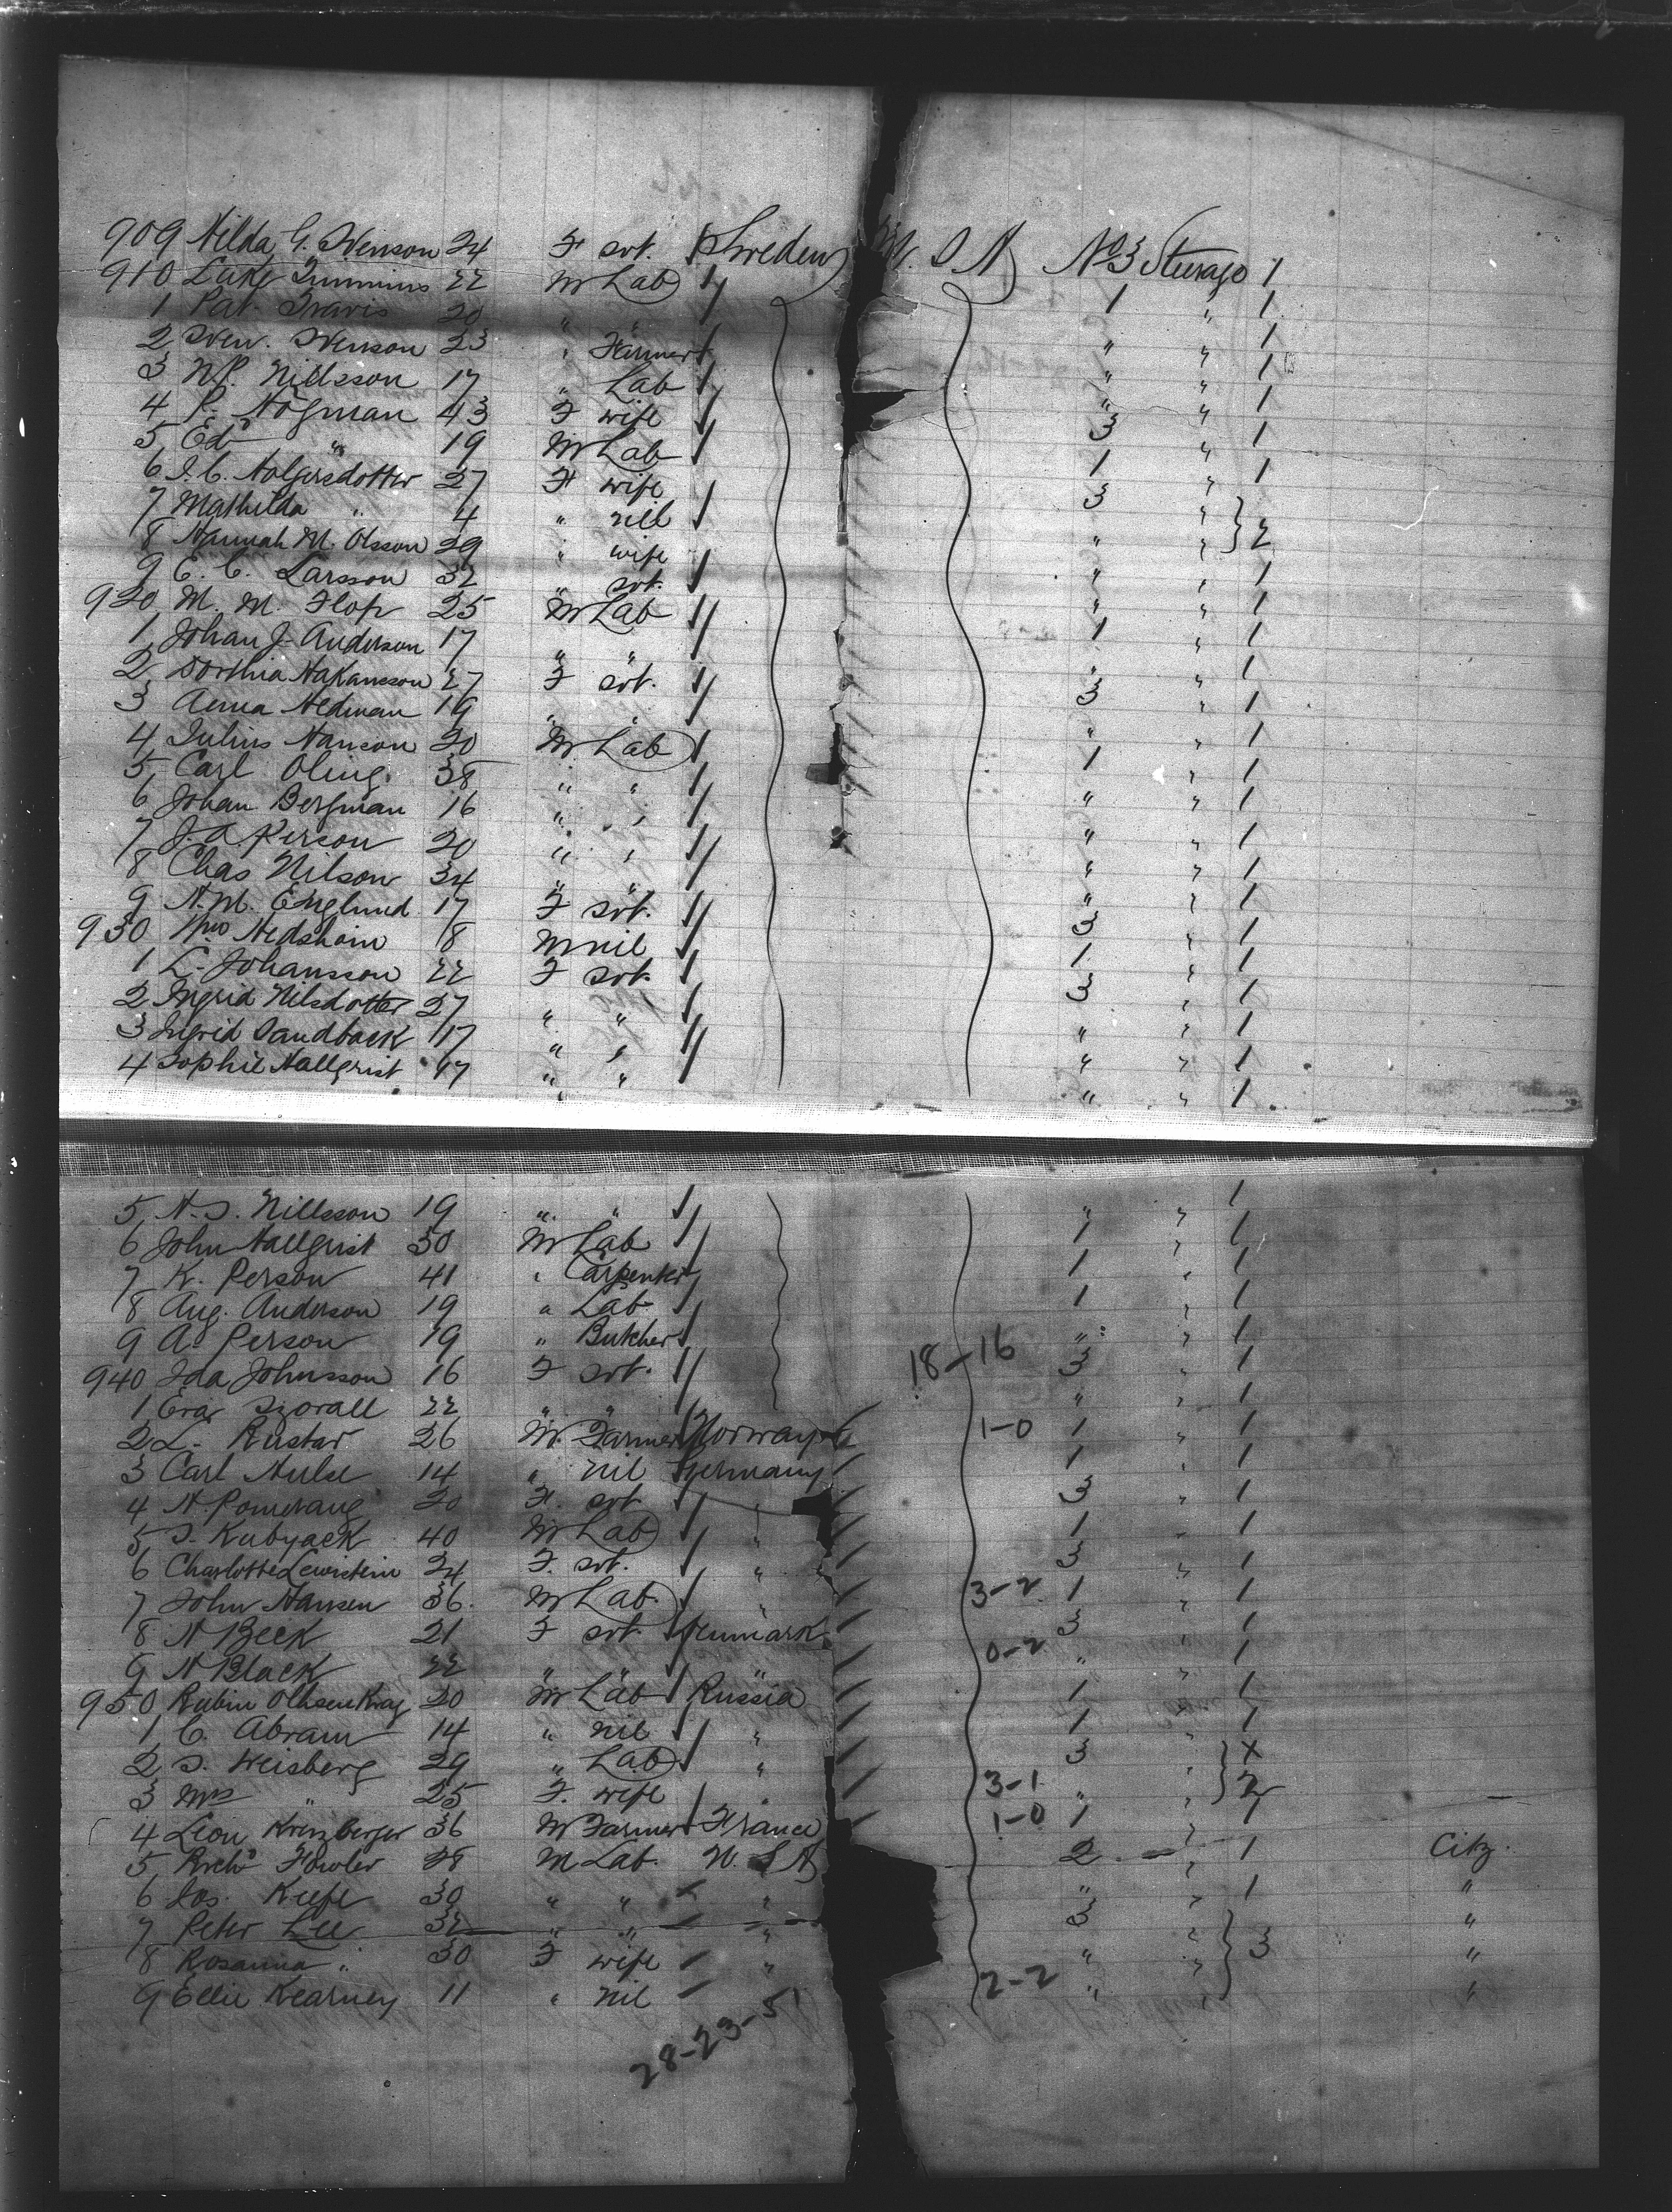 909 Hilda G. Svenson 24 F svt. Sweden U. S. A No 3 Steerage 1
910 Luke Timmins 22 M Lab 1 " 1
1 Pat. Travis 20 " " " " 1
2 Sven. Svenson 23 " Farmer " " 1
3 N.P. Nillsson 17 " Lab " " 1
4 P. Hogman 43 F wife 3 " 1
5 Ed " 19 M Lab 1 " 1
6 I. C. Holgersdotter 27 F wife 3 "
7 Mathilda " 4 " nill " " 2
8 Hannah M. Olsson 29 " wife " " 1
9 E. C. Larsson 32 " svt. " " 1
920 M. M. Flop 25 M Lab 1 " 1
1 Johan J. Anderson 17 " " " " 1
2 Dorthia Hakansson 27 F svt. 3 " 1
3 Anna Hedman 19 " " " " 1
4 Julius Hanson 20 M Lab 1 " 1
5 Carl Oling 38 " " " " 1
6 Johan Bergman 16 " " " " 1
7 J. A Person 20 " " " " 1
8 Chas Nilson 34 " " " " 1
9 N. M. Englund 17 F svt. 3 " 1
930 Hedshoin 8 M nil 1 " 1
1 L. Johansson 22 F svt. 3 " 1
2 Ingrid Nilsdotter 27 " " " " 1
3 Ingrid Sandback 17 " " " " 1
4 Sophie Hallqrist 17 " " " " 1
5 N. S. Nillsson 19 " " " " 1
6 John Hallqrist 50 M Lab 1 " 1
7 K. Person 41 " Carpenter 1 " 1
8 Aug. Anderson 19 " Lab 1 " 1
9 A. Person 19 " Butcher " " 1
940 Ida Johnsson 16 F svt. 18-16 3 " 1
1 Eva 22 " " " " 1
2 L. Rustad 26 M. Farmer Norway 1-0 1 " 1
3 Carl Hulse 14 " nil Germany 1 " 1
4 N Pomerang 20 F. svt " 3 " 1
5 S. Kubyack 40 M Lab " 1 " 1
6 Charlotte Lewistein 24 F. svt. " 3 " 1
7 John Hansen 36 M Lab. " 3-2 1 " 1
8 N Beck 21 F svt. Denmark 3 " 1
9 N Black 22 " " " 0-2 " " 1
950 Rubin 20 M Lab Russia 1 " 1
1 C. Abram 14 " nil " 1 " 1
2 S. Weisberg 29 " Lab " 3 " X
3 Mrs " 25 F. wife " 3-1 " " 2
4 Leon Krinzberger 36 M Farmer France 1-0 1 " 1
5 Richd Fowler 28 M Lab. U. S A 2 " 1 Citz.
6 Jos. Keefe 30 " " " " " 1 "
7 Peter Lee 32 " " " 3 " "
8 Rosanna " 30 F wife " " " 3 "
9 Ellie Kearney 11 " nil 2-2 " " "
28-23-5